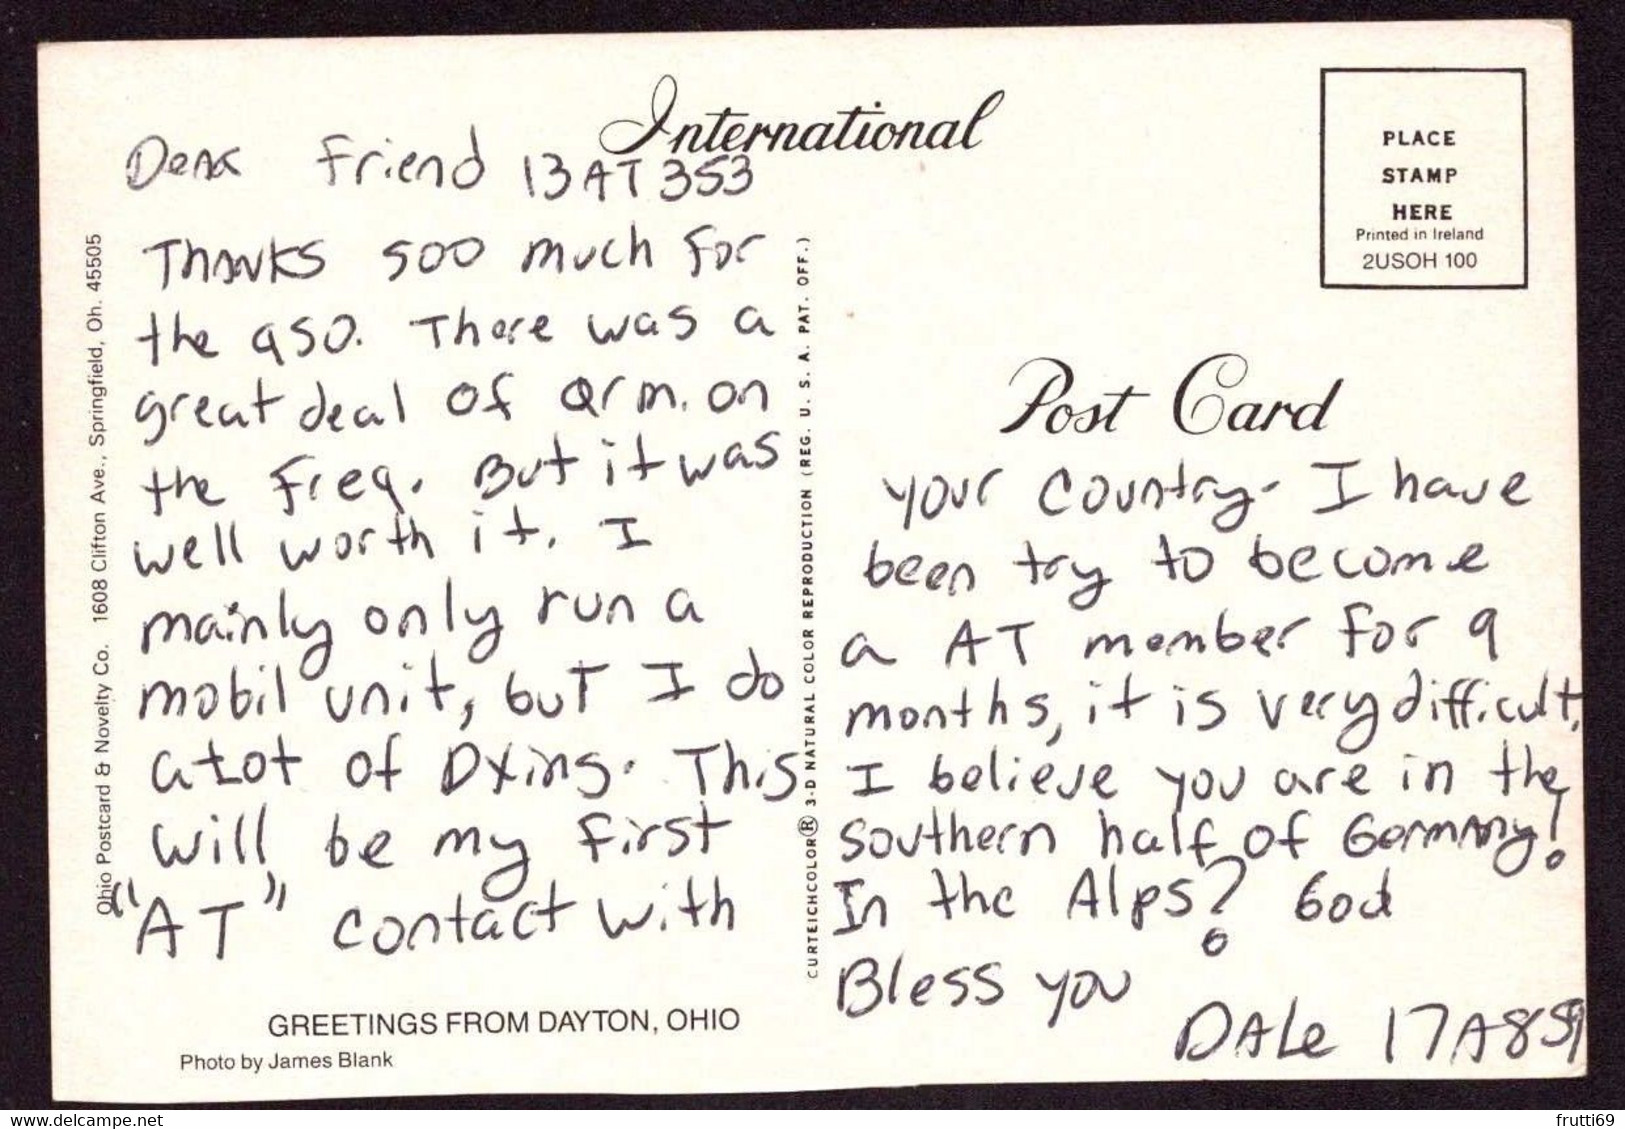 International
Dear Friend 13AT353
Thanks soo much for
the QSO. There was a
great deal of Qrm. on
the freq. But it was
well worth it. I
mainly only run a
mobil unit, but I do
a lot of Dxing. This
will be my first
"AT" contact with
GREETINGS FROM DAYTON, OHIO
Photo by James Blank
Ohio Postcard & Novelty Co. 1608 Clifton Ave., Springfield, Oh. 45505
CURTEICHCOLOR® 3-D NATURAL COLOR REPRODUCTION (REG. U. S. A. PAT. OFF.)
PLACE
STAMP
HERE
Printed in Ireland
2USOH 100
Post Card
your country. I have
been try to become
a AT member for 9
months, it is very difficult.
I believe you are in the
southern half of Germany!
In the Alps? God
Bless you
DALe 17A859
delcampe.net
frutti69